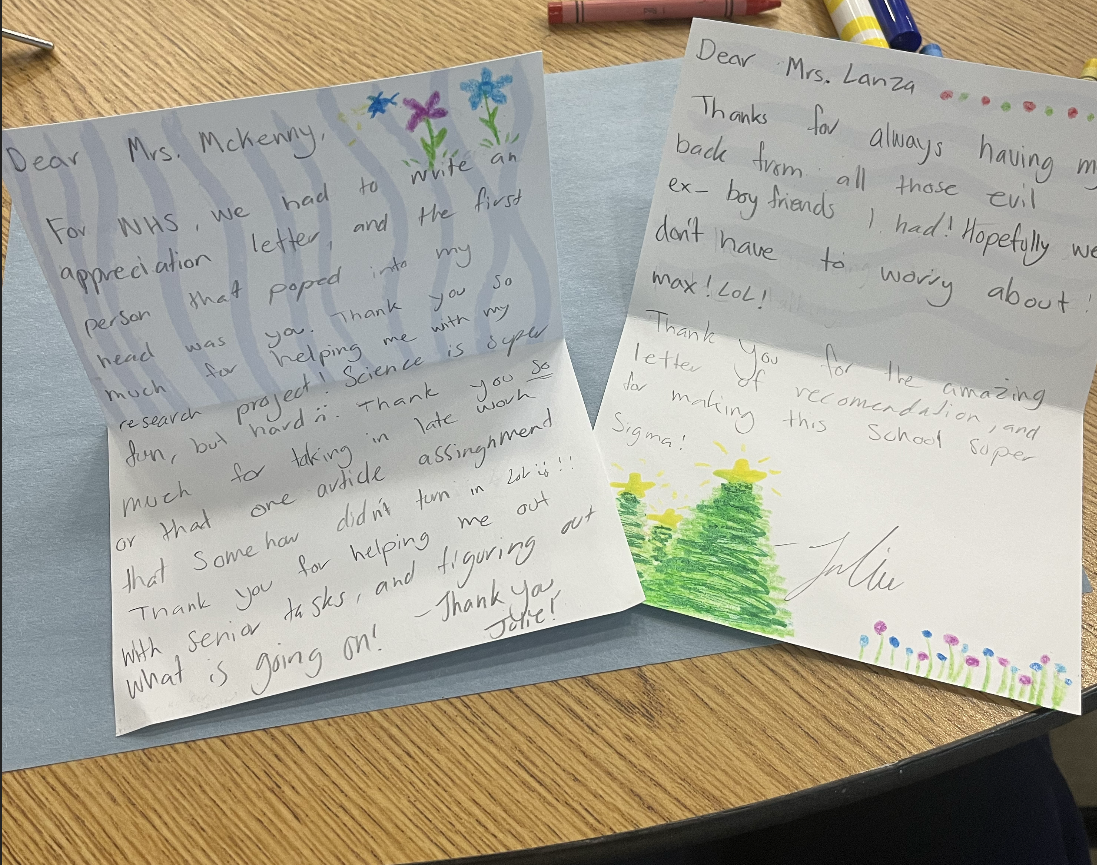 Dear Mrs. McKenny,
For NHS, we had to write an
appreciation letter, and the first
person that poped into my
head was you. Thank you so
much for helping me with my
research project! Science is super
fun, but hard :. Thank you so
much for taking in late work
or that one article assinghment
that somehow didn't turn in LoL !!
Thank you for helping me out
with senior tasks, and figuring out
what is going on!
- Thank you
Julie!
Dear Mrs. Lanza
Thanks for always having my
back from all those evil
ex-boyfriends I had! Hopefully we
don't have to worry about
max! LOL!
Thank you for the amazing
letter of recomendation, and
for making this School super
Sigma!
- Julie